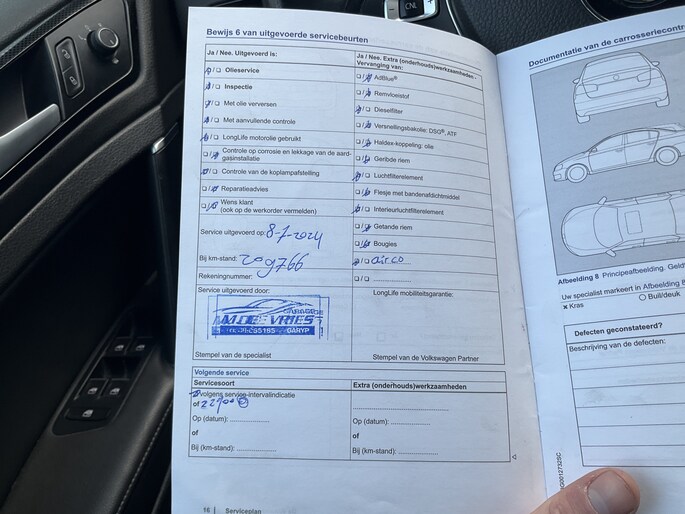 CNL
Bewijs 6 van uitgevoerde servicebeurten
Ja / Nee. Uitgevoerd is:
Ja / Nee. Extra (onderhouds)werkzaamheden - Vervanging van:
/ Olieservice
/ AdBlue®
/ Inspectie
/ Remvloeistof
/ Met olie verversen
/ Dieselfilter
/ Met aanvullende controle
/ Versnellingsbakolie: DSG®, ATF
/ LongLife motorolie gebruikt
/ Haldex-koppeling: olie
/ Controle op corrosie en lekkage van de aard-
gasinstallatie
/ Geribde riem
/ Controle van de koplampafstelling
/ Luchtfilterelement
/ Reparatieadvies
/ Flesje met bandenafdichtmiddel
/ Wens klant
(ook op de werkorder vermelden)
/ Interieurluchtfilterelement
/ Getande riem
Service uitgevoerd op: 8-7-2024
/ Bougies
Bij km-stand: 209766
/ airco
Rekeningnummer:
/
Service uitgevoerd door:
LongLife mobiliteitsgarantie:
GARAGE
DE VRIES
GARYP
Stempel van de specialist
Stempel van de Volkswagen Partner
Volgende service
Servicesoort
Extra (onderhouds)werkzaamheden
volgens service-intervalindicatie
of
Op (datum):
Op (datum):
of
of
Bij (km-stand):
Bij (km-stand):
16 Serviceplan
Documentatie van de carrosseriecontr
Afbeelding 8 Principeafbeelding. Geldt
Uw specialist markeert in Afbeelding 8
× Kras
Buil/deuk
Defecten geconstateerd?
Beschrijving van de defecten: